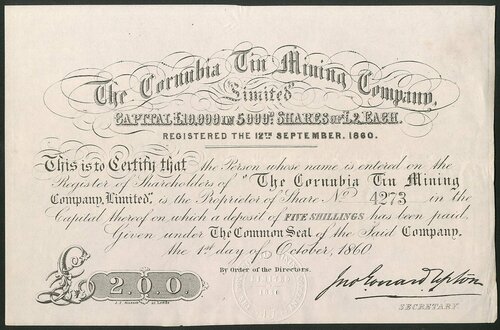 The Cornubia Tin Mining Company,
Limited
CAPITAL £10,000 IN 5000, SHARES OF £2 EACH.
REGISTERED THE 12TH SEPTEMBER, 1860.
This is to Certify that the Person whose name is entered on the
Register of Shareholders of "The Cornubia Tin Mining
Company, Limited", is the Proprietor of Share No 4273 in the
Capital thereof on which a deposit of FIVE SHILLINGS has been paid,
Given under The Common Seal of the Said Company,
the 1st day of October, 1860
By Order of the Directors,
£2.0.0.
SECRETARY